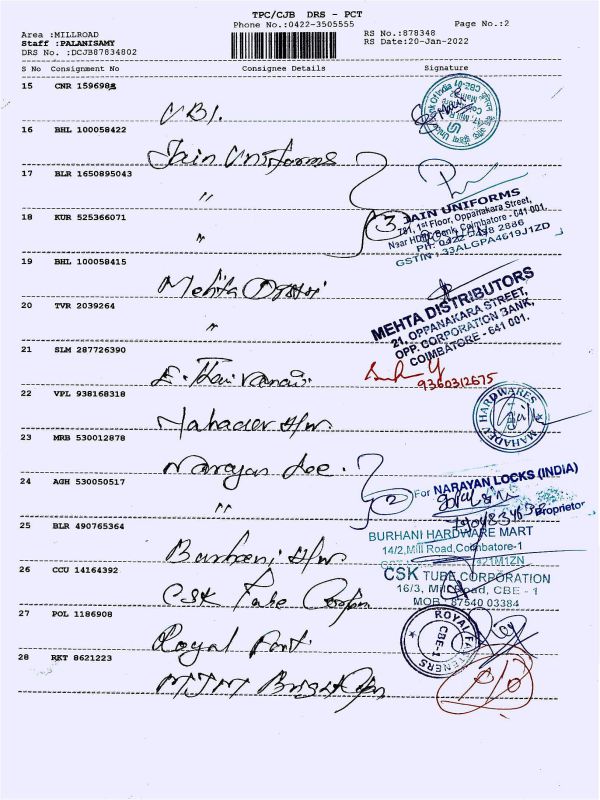 TPC/CJB DRS - PCT
Phone No.:0422-3505555
Page No.:2
Area :MILLROAD
Staff :PALANISAMY
DRS No. :DCJB87834802
RS No.:878348
RS Date:20-Jan-2022
S No Consignment No Consignee Details Signature
15 CNR 1596983
UBI.
16 BHL 100058422
Jain Uniforms
17 BLR 1650895043
"
3
JAIN UNIFORMS
781, 1st Floor, Oppanakara Street,
Near HDFC Bank, Coimbatore - 641 001.
PH: 0422 2886
GSTIN : 33ALGPA4619J1ZD
18 KUR 525366071
"
19 BHL 100058415
Mehta Distri
MEHTA DISTRIBUTORS
21, OPPANAKARA STREET,
OPP. CORPORATION BANK,
COIMBATORE - 641 001.
20 TVR 2039264
"
21 SLM 287726390
9360312675
22 VPL 938168318
Mahadev H/w.
MAHADEV HARDWARES
23 MRB 530012878
Narayan Loc.
24 AGH 530050517
"
2
For NARAYAN LOCKS (INDIA)
Proprietor
25 BLR 490765364
Burhani H/w
BURHANI HARDWARE MART
14/2, Mill Road, Coimbatore-1
26 CCU 14164392
CSK Tube Corpn
CSK TUBE CORPORATION
16/3, Mill Road, CBE - 1
MOB : 87540 03384
27 POL 1186908
Royal Fast.
ROYAL FASTENERS
CBE-1
28 RKT 8621223